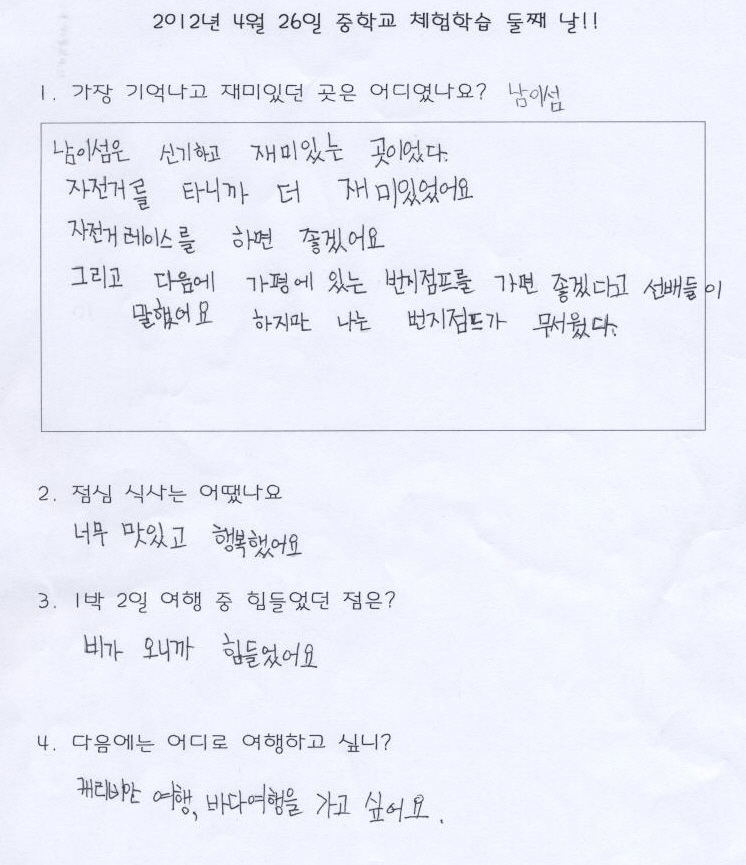 2012년 4월 26일 중학교 체험학습 둘째 날!!
1. 가장 기억나고 재미있던 곳은 어디였나요? 남이섬
남이섬은 신기하고 재미있는 곳이었다.
자전거를 타니까 더 재미있었어요
자전거레이스를 하면 좋겠어요
그리고 다음에 가평에 있는 번지점프를 가면 좋겠다고 선배들이
말했어요 하지만 나는 번지점프가 무서웠다.
2. 점심 식사는 어땠나요
너무 맛있고 행복했어요
3. 1박 2일 여행 중 힘들었던 점은?
비가 오니까 힘들었어요
4. 다음에는 어디로 여행하고 싶니?
캐리비안 여행, 바다여행을 가고 싶어요.